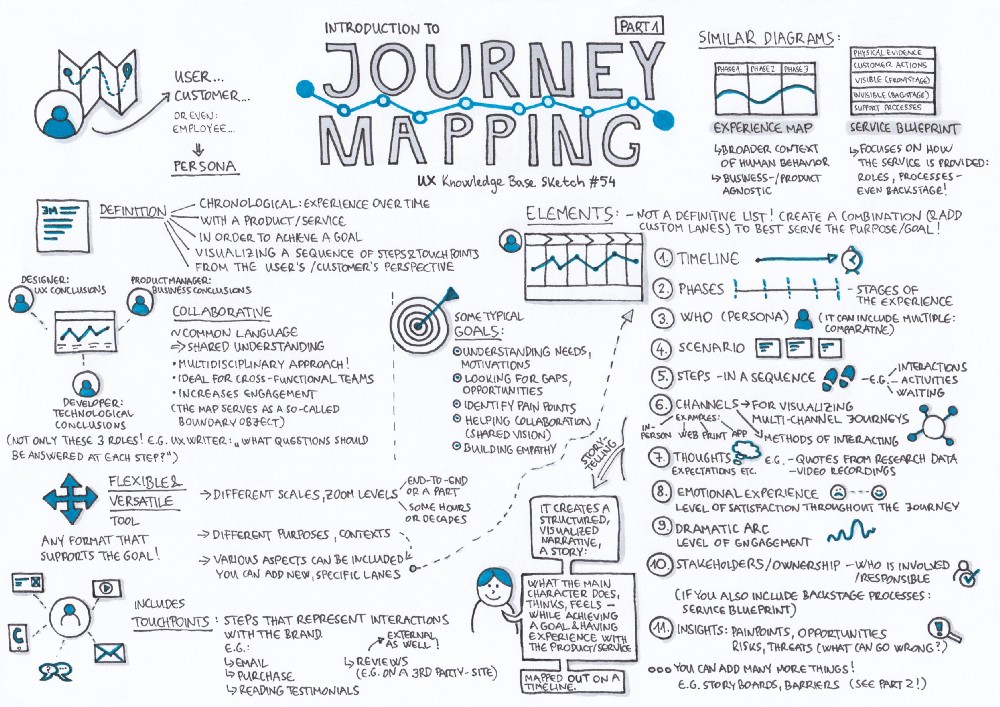 INTRODUCTION TO
PART 1
JOURNEY
MAPPING
UX Knowledge Base Sketch #54
USER...
CUSTOMER...
OR EVEN:
EMPLOYEE...
⇓
PERSONA
SIMILAR DIAGRAMS:
PHASE1 PHASE2 PHASE3
EXPERIENCE MAP
↳BROADER CONTEXT
OF HUMAN BEHAVIOR
↳BUSINESS-/PRODUCT
AGNOSTIC
PHYSICAL EVIDENCE
CUSTOMER ACTIONS
VISIBLE (FRONTSTAGE)
INVISIBLE (BACKSTAGE)
SUPPORT PROCESSES
SERVICE BLUEPRINT
↳FOCUSES ON HOW
THE SERVICE IS PROVIDED:
ROLES, PROCESSES-
EVEN BACKSTAGE!
DEFINITION
CHRONOLOGICAL: EXPERIENCE OVER TIME
WITH A PRODUCT/SERVICE
IN ORDER TO ACHIEVE A GOAL
VISUALIZING A SEQUENCE OF STEPS&TOUCHPOINTS
FROM THE USER'S/CUSTOMER'S PERSPECTIVE
DESIGNER:
UX CONCLUSIONS
PRODUCT MANAGER:
BUSINESS CONCLUSIONS
DEVELOPER:
TECHNOLOGICAL
CONCLUSIONS
COLLABORATIVE
~COMMON LANGUAGE
⇒SHARED UNDERSTANDING
• MULTIDISCIPLINARY APPROACH!
• IDEAL FOR CROSS-FUNCTIONAL TEAMS
• INCREASES ENGAGEMENT
(THE MAP SERVES AS A SO-CALLED
BOUNDARY OBJECT)
(NOT ONLY THESE 3 ROLES! E.G. UX WRITER: „WHAT QUESTIONS SHOULD
BE ANSWERED AT EACH STEP?")
SOME TYPICAL
GOALS:
UNDERSTANDING NEEDS,
MOTIVATIONS
LOOKING FOR GAPS,
OPPORTUNITIES
IDENTIFY PAIN POINTS
HELPING COLLABORATION
(SHARED VISION)
BUILDING EMPATHY
FLEXIBLE &
VERSATILE
TOOL
ANY FORMAT THAT
SUPPORTS THE GOAL!
→DIFFERENT SCALES, ZOOM LEVELS
END-TO-END
OR A PART
SOME HOURS
OR DECADES
→DIFFERENT PURPOSES, CONTEXTS
→VARIOUS ASPECTS CAN BE INCLUDED
YOU CAN ADD NEW, SPECIFIC LANES
INCLUDES
TOUCHPOINTS: STEPS THAT REPRESENT INTERACTIONS
WITH THE BRAND.
E.G.:
↳EMAIL
↳PURCHASE
↳READING TESTIMONIALS
EXTERNAL
AS WELL!
↳REVIEWS
(E.G. ON A 3RD PARTY-SITE)
STORY-
TELLING
IT CREATES A
STRUCTURED,
VISUALIZED
NARRATIVE,
A STORY:
WHAT THE MAIN
CHARACTER DOES,
THINKS, FEELS –
WHILE ACHIEVING
A GOAL & HAVING
EXPERIENCE WITH
THE PRODUCT/SERVICE
MAPPED OUT ON A
TIMELINE.
ELEMENTS: - NOT A DEFINITIVE LIST! CREATE A COMBINATION (& ADD
CUSTOM LANES) TO BEST SERVE THE PURPOSE/GOAL!
1. TIMELINE
2. PHASES - STAGES OF
THE EXPERIENCE
3. WHO (PERSONA) (IT CAN INCLUDE MULTIPLE:
COMPARATIVE)
4. SCENARIO
5. STEPS - IN A SEQUENCE - E.G. INTERACTIONS
ACTIVITIES
WAITING
6. CHANNELS → FOR VISUALIZING
MULTI-CHANNEL JOURNEYS
EXAMPLES:
IN-PERSON WEB PRINT APP
METHODS OF INTERACTING
7. THOUGHTS
EXPECTATIONS ETC.
E.G. - QUOTES FROM RESEARCH DATA
- VIDEO RECORDINGS
8. EMOTIONAL EXPERIENCE
LEVEL OF SATISFACTION THROUGHOUT THE JOURNEY
9. DRAMATIC ARC
LEVEL OF ENGAGEMENT
10. STAKEHOLDERS/OWNERSHIP - WHO IS INVOLVED
/RESPONSIBLE
(IF YOU ALSO INCLUDE BACKSTAGE PROCESSES:
SERVICE BLUEPRINT)
11. INSIGHTS: PAINPOINTS, OPPORTUNITIES
RISKS, THREATS (WHAT CAN GO WRONG?)
ooo YOU CAN ADD MANY MORE THINGS!
E.G. STORYBOARDS, BARRIERS (SEE PART 2!)